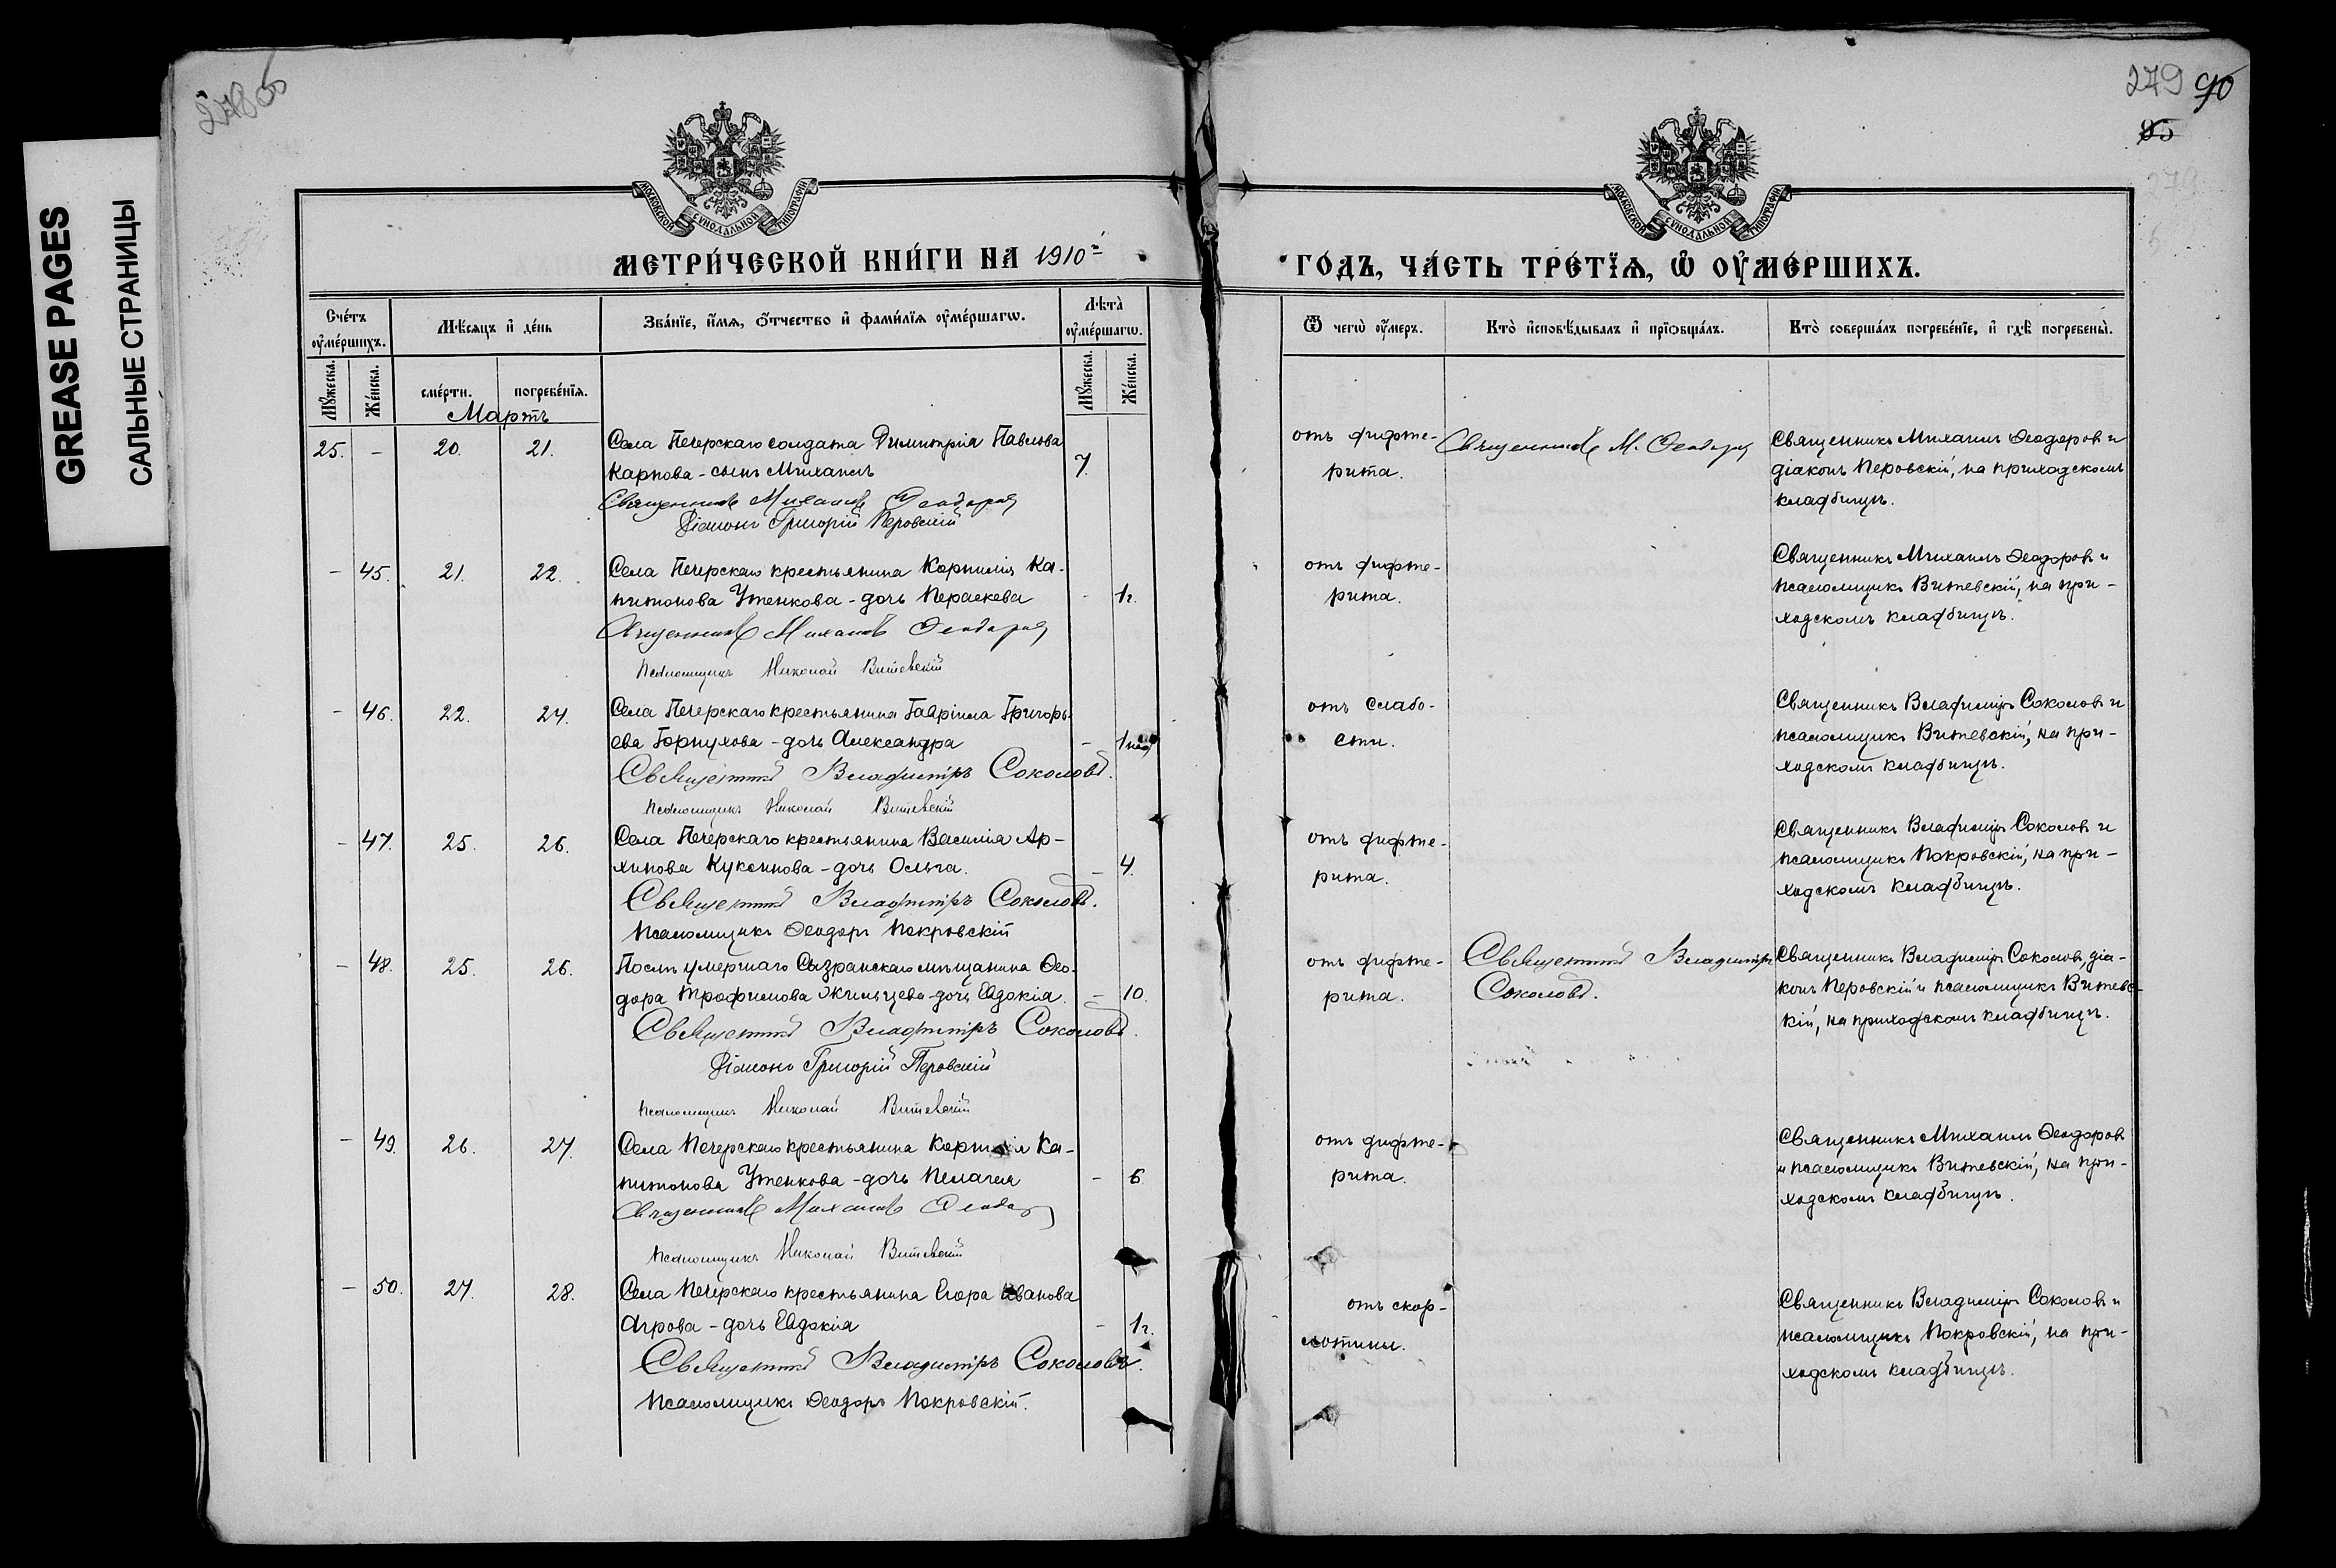 GREASE PAGES
САЛЬНЫЕ СТРАНИЦЫ
278 об
279 90
85
МОСКОВСКОЙ СУНОДАЛЬНОЙ ТИПОГРАФІИ
МОСКОВСКОЙ СУНОДАЛЬНОЙ ТИПОГРАФІИ
МЕТРИ́ЧЕСКОЙ КНИ́ГИ НА 1910 г
ГО́ДЪ, ЧА́СТЬ ТРЕ́ТЇѦ, Ѡ҆ ОУ҆МЕ́РШИХЪ.
Сче́тъ оу҆ме́ршихъ.
Мꙋ́жеска.
Же́нска.
Мѣ́сяцъ и҆ де́нь
сме́рти.
погребе́нїя.
Зва́нїе, и҆́мя, ѻ҆́тчество и҆ фами́лїя оу҆ме́ршагѡ.
Лѣ́та оу҆ме́ршагѡ.
Мꙋ́жеска.
Же́нска.
Ѿ чегѡ̀ оу҆́меръ.
Кто̀ и҆сповѣ́дывалъ и҆ прїѡбща́лъ.
Кто̀ соверша́лъ погребе́нїе, и҆ гдѣ̀ погребены̀.
Мартъ
25. - 20. 21. Села Печерскаго солдата Димитрія Павлова
Карпова - сынъ Михаилъ 7.
Священникъ Михаилъ Ѳеодоровъ
Діаконъ Григорій Перовскій
отъ дифте-
рита.
Священникъ М. Ѳеодоровъ
Священникъ Михаилъ Ѳеодоровъ и
діаконъ Перовскій, на приходскомъ
кладбищѣ.
- 45. 21. 22. Села Печерскаго крестьянина Корнилія Ка-
питонова Утенкова - дочь Параскева - 1г.
Священникъ Михаилъ Ѳеодоровъ
Псаломщикъ Николай Витевскій
отъ дифте-
рита.
Священникъ Михаилъ Ѳеодоровъ и
псаломщикъ Витевскій, на при-
ходскомъ кладбищѣ.
- 46. 22. 24. Села Печерскаго крестьянина Гавріила Григорь-
ева Горпухова - дочь Александра - 1
Священникъ Владиміръ Соколовъ.
Псаломщикъ Николай Витевскій
отъ слабо-
сти.
Священникъ Владиміръ Соколовъ и
псаломщикъ Витевскій, на при-
ходскомъ кладбищѣ.
- 47. 25. 26. Села Печерскаго крестьянина Василія Ар-
хипова Куксинова - дочь Ольга. - 4.
Священникъ Владиміръ Соколовъ.
Псаломщикъ Ѳеодоръ Покровскій
отъ дифте-
рита.
Священникъ Владиміръ Соколовъ и
псаломщикъ Покровскій, на при-
ходскомъ кладбищѣ.
- 48. 25. 26. Послѣ умершаго Сызранскаго мѣщанина Ѳео-
дора Трофимова Жильцева - дочь Евдокія. - 10.
Священникъ Владиміръ Соколовъ.
Діаконъ Григорій Перовскій
Псаломщикъ Николай Витевскій
отъ дифте-
рита.
Священникъ Владиміръ
Соколовъ.
Священникъ Владиміръ Соколовъ, діа-
конъ Перовскій и псаломщикъ Витевс-
кій, на приходскомъ кладбищѣ.
- 49. 26. 27. Села Печерскаго крестьянина Корнилія Ка-
питонова Утенкова - дочь Пелагея - 6
Священникъ Михаилъ Ѳеодоровъ
Псаломщикъ Николай Витевскій
отъ дифте-
рита.
Священникъ Михаилъ Ѳеодоровъ
и псаломщикъ Витевскій, на при-
ходскомъ кладбищѣ.
- 50. 27. 28. Села Печерскаго крестьянина Егора Иванова
Агрова - дочь Евдокія - 1г.
Священникъ Владиміръ Соколовъ.
Псаломщикъ Ѳеодоръ Покровскій.
отъ скар-
лотины.
Священникъ Владиміръ Соколовъ и
псаломщикъ Покровскій, на при-
ходскомъ кладбищѣ.